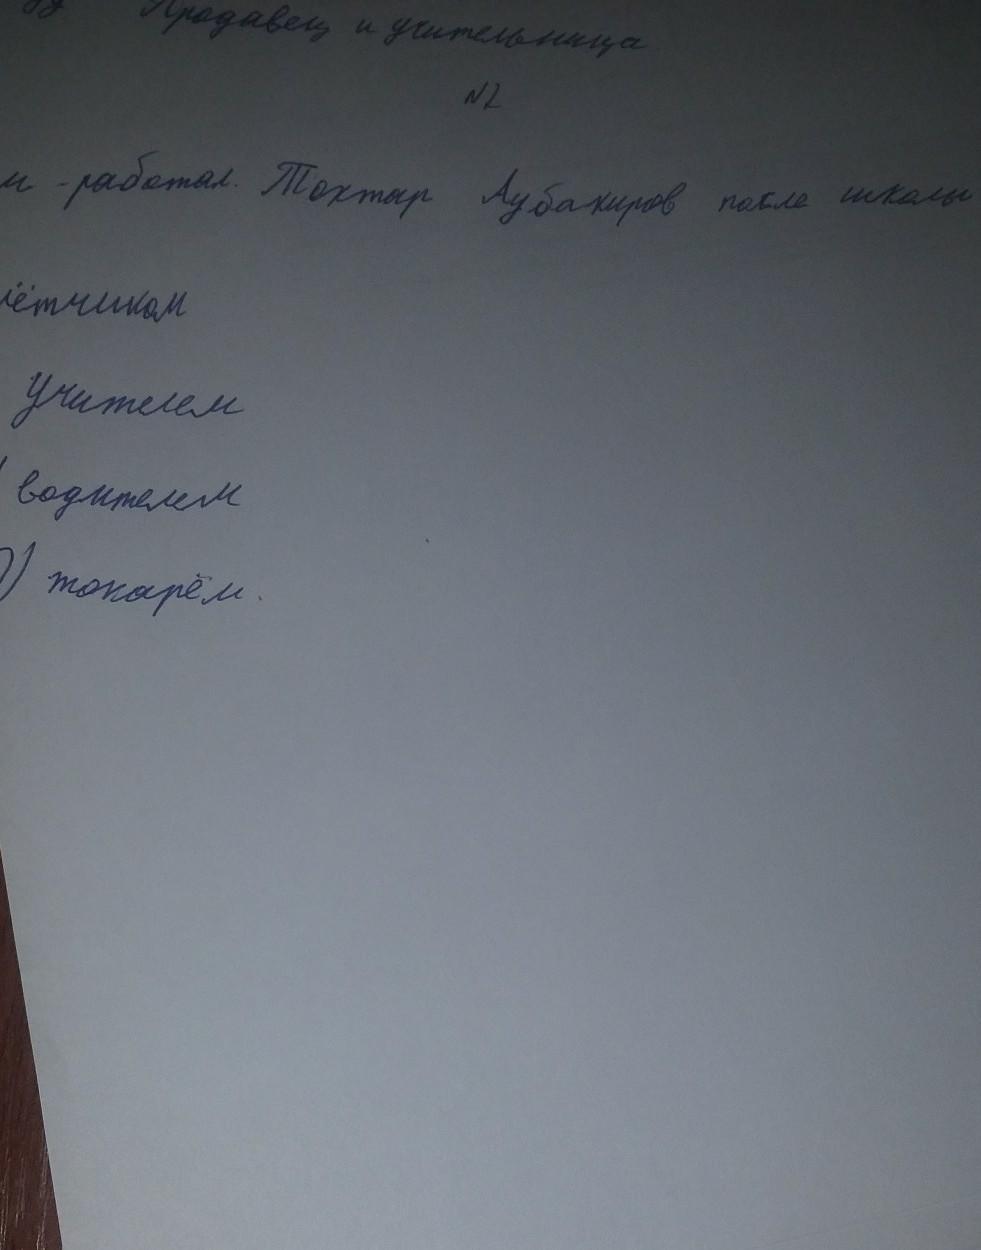 Продавец и учительница
№2
м - работал. Тохтар Аубакиров после школы
лётчиком
Учителем
) водителем
) токарём.